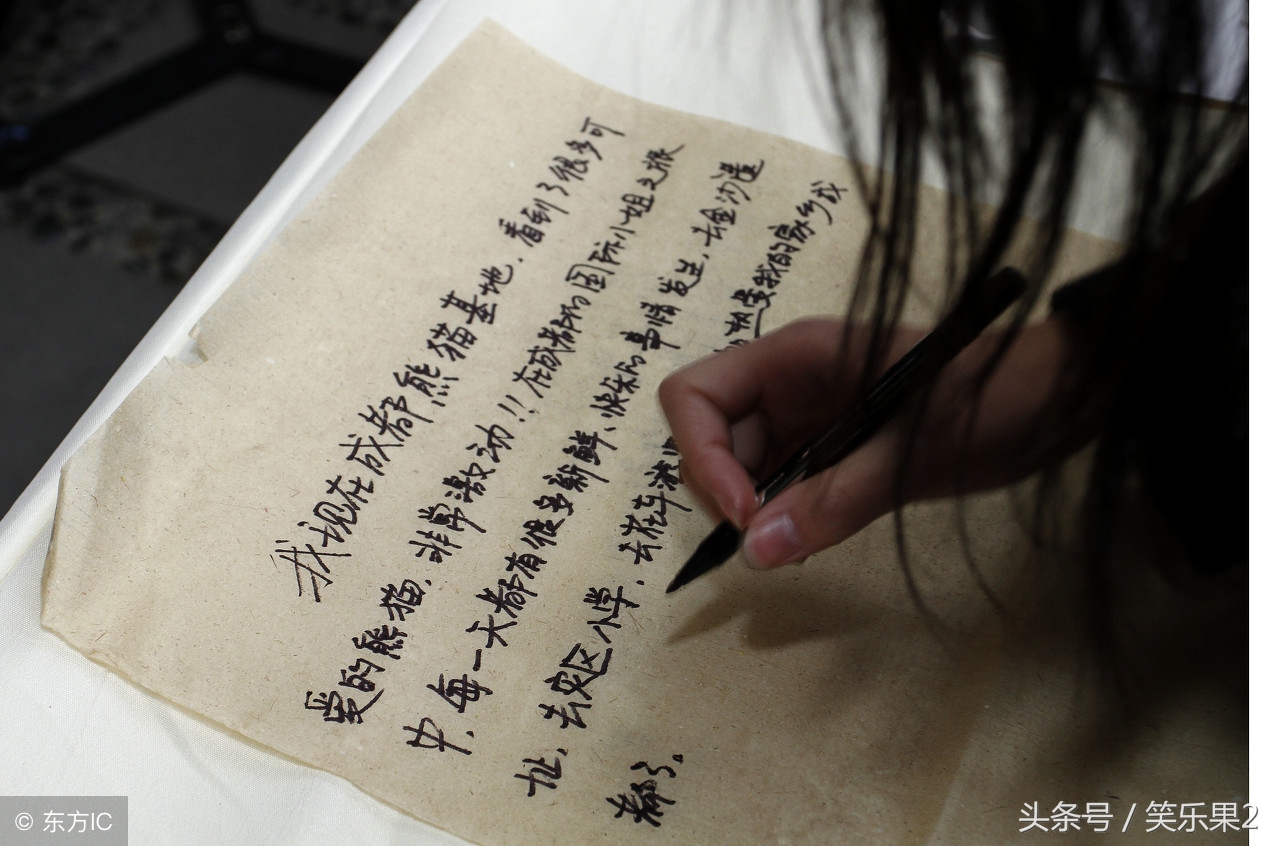 我现在成都熊猫基地，看到了很多可
爱的熊猫，非常激动！！在成都的国际小姐之旅
中，每一天都有很多新鲜、快乐的事情发生，去金沙遗
址，去灾区小学，去花车游 热爱我的家乡成
都了。
© 东方IC
头条号 / 笑乐果2